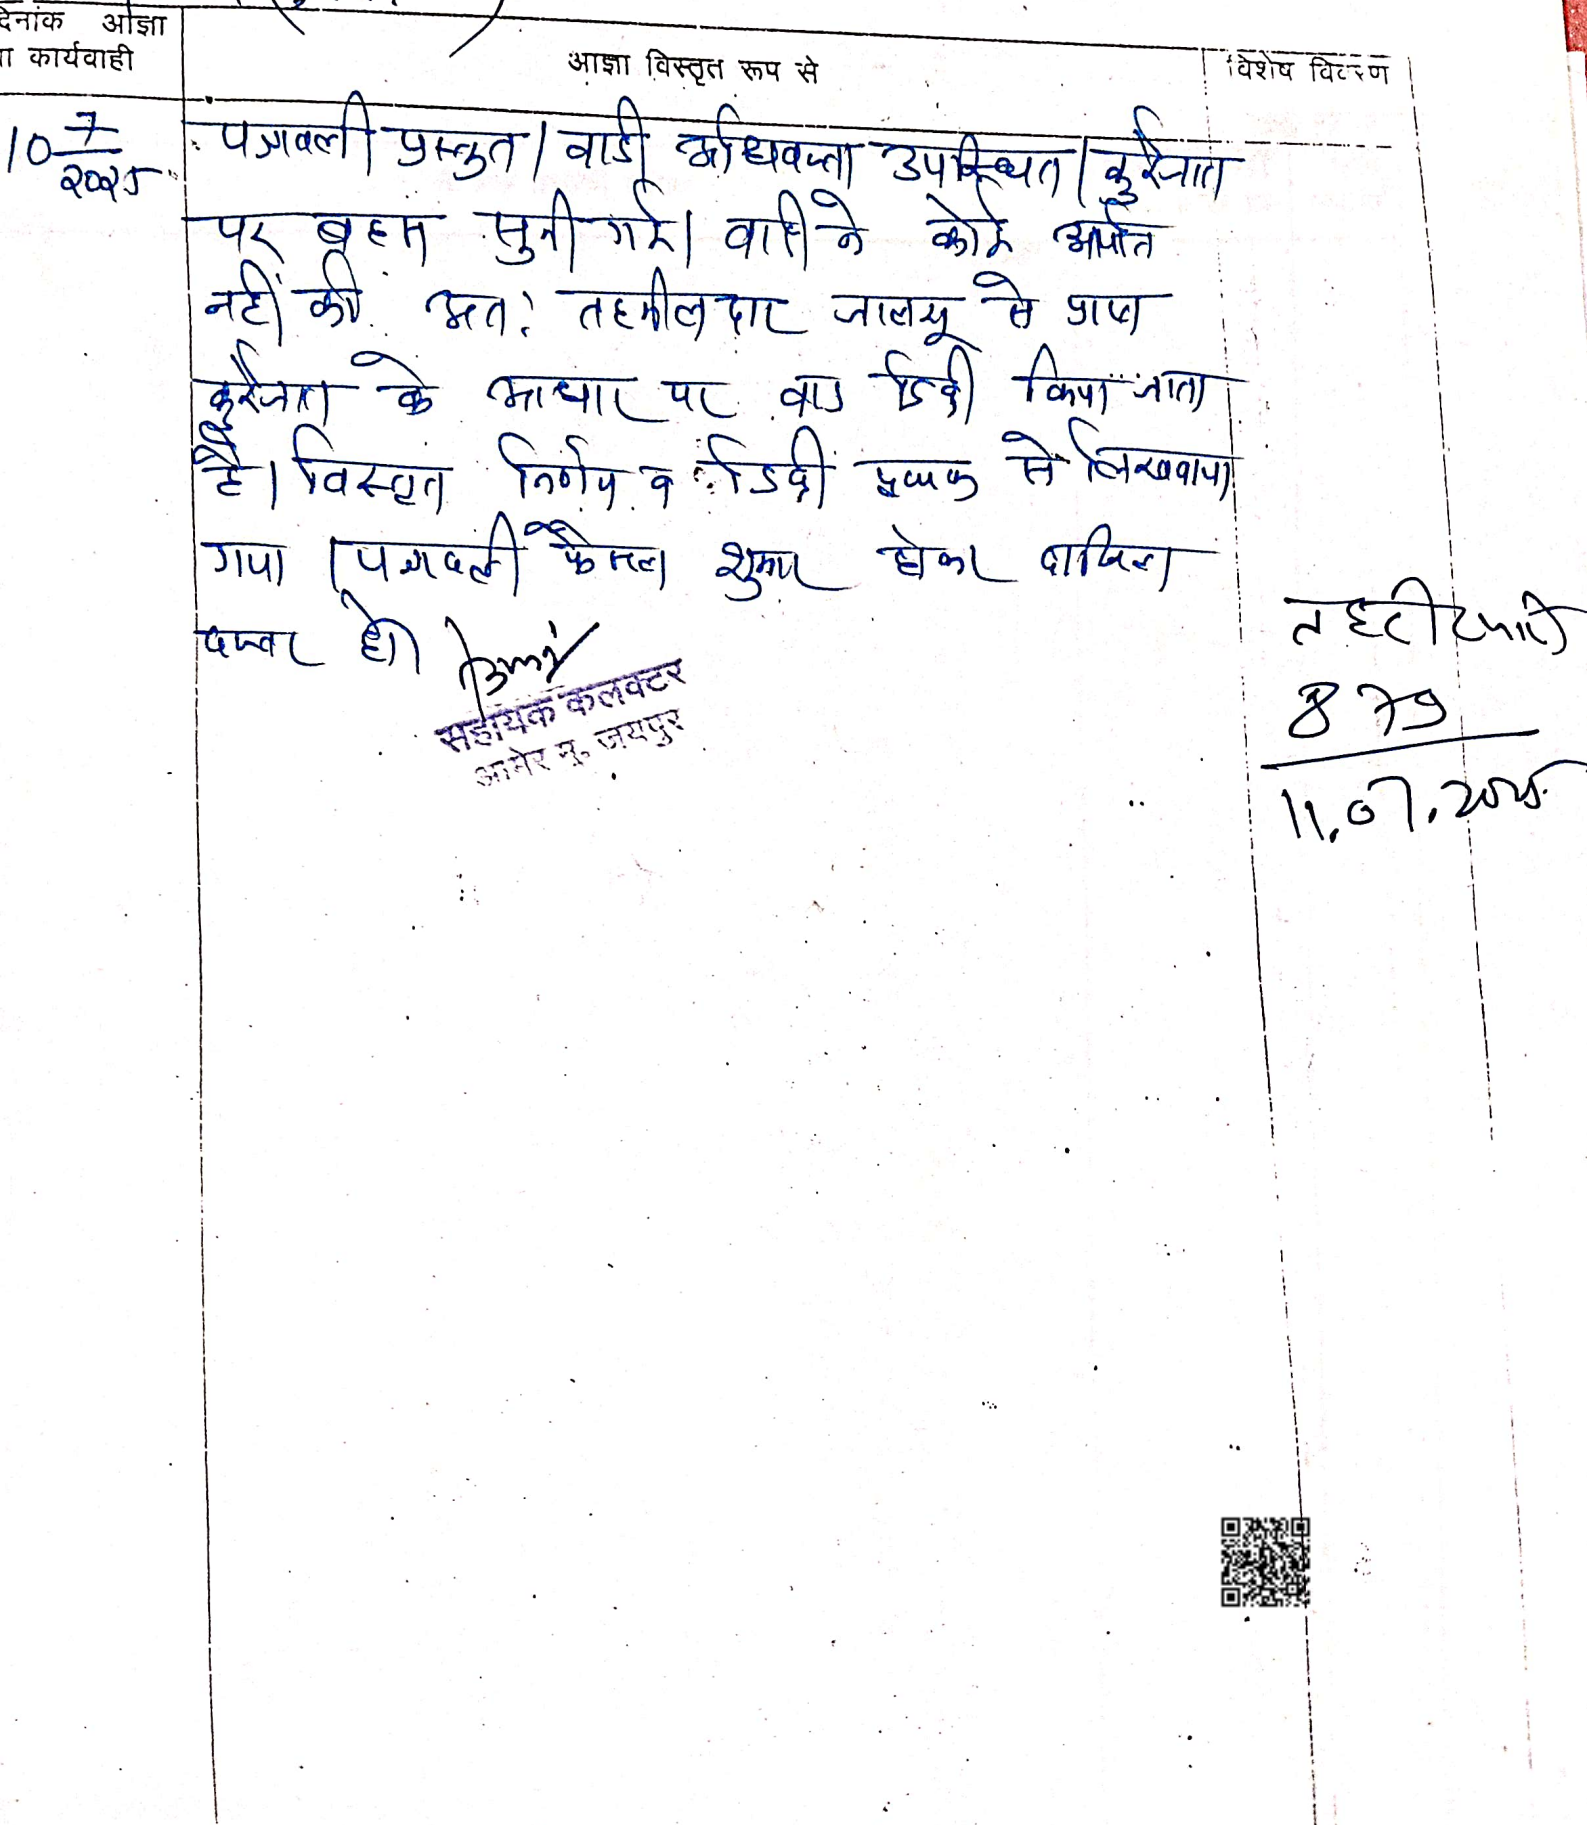 दिनांक आज्ञा
या कार्यवाही
आज्ञा विस्तृत रूप से
विशेष विवरण
10 7/2025
पत्रावली प्रस्तुत। वादी अधिवक्ता उपस्थित। कुर्रेजात
पर बहस सुनी गई। वादी ने कोई आपत्ति
नहीं की. अत: तहसीलदार जालसू से प्राप्त
कुर्रेजात के आधार पर वाद डिक्री किया जाता
है। विस्तृत निर्णय व डिक्री पृथक से लिखवाया
गया। पत्रावली फैसल शुमार होकर दाखिल
दफ्तर हो।
सहायक कलक्टर
आमेर मु. जयपुर
879
11.07.2025